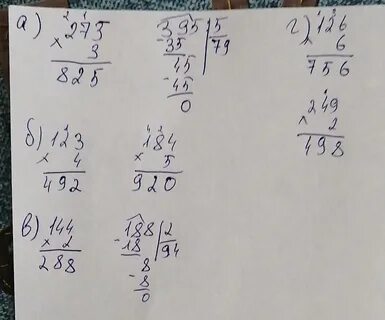 а) 2 1
275
× 3
825
395 | 5
-35 79
45
-45
0
г) 1
126
× 6
756
1
249
× 2
498
б) 1
123
× 4
492
4 2
184
× 5
920
в) 144
× 2
288
188 | 2
-18 94
8
-8
0